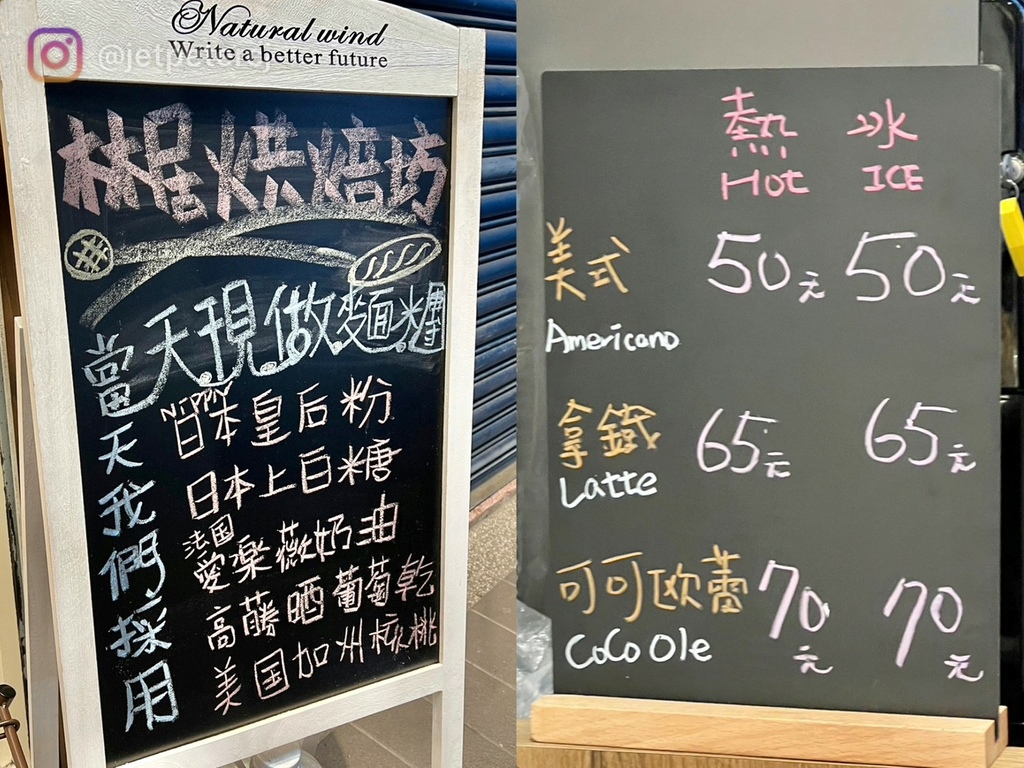 Natural wind
Write a better future
林居烘焙坊
天.現.做.麵.糰
當天我們採用
Nippn
日本皇后粉
日本上白糖
法国
愛樂薇奶油
高藤晒葡萄乾
美国加州核桃
熱 冰
Hot ICE
美式 50元 50元
Americano
拿鐵 65元 65元
Latte
可可欧蕾 70元 70元
CoCo Ole